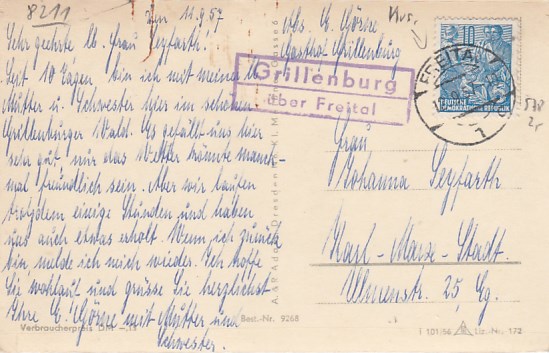 8211
den 11.9.57
Sehr geehrte lb. Frau Seyfarth!
Seit 10 Tagen bin ich mit meiner lb.
Mutter u. Schwester hier im schönen
Grillenburger Wald. Es gefällt uns hier
sehr gut nur das Wetter könnte manch-
mal freundlich sein. Aber wir laufen
trotzdem einige Stunden und haben
uns auch etwas erholt. Wenn ich zurück
bin, melde ich mich wieder. Ich hoffe
Sie wohlauf und grüsse Sie herzlichst
Ihre E. Görne mit Mutter und
Schwester.
Verbraucherpreis DM
Best.-Nr. 9268
Abs. E. Görne
Gasthof Grillenburg
Grillenburg
über Freital
FREITAL
1
DEUTSCHE
DEMOKRATISCHE REPUBLIK
10
Frau
Johanna Seyfarth
Karl-Marx-Stadt.
Ulmenstr. 25, Eg.
I 101/56 Liz.-Nr. 172